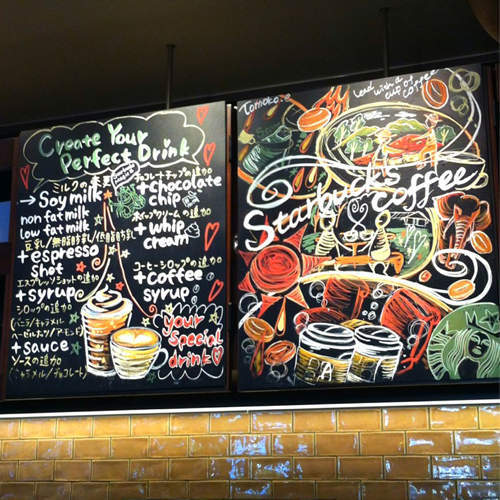 Create Your
Perfect Drink
ミルクの変更
→ Soy milk
non fat milk
low fat milk
豆乳/無脂肪乳/低脂肪乳
+ espresso
shot
エスプレッソショットの追加
+ syrup
シロップの追加
(バニラ/キャラメル
ヘーゼルナッツ/アーモンド)
sauce
ソースの追加
(キャラメル/チョコレート)
チョコレートチップの追加
+ chocolate
chip
ホイップクリームの追加
+ whip
cream
コーヒーシロップの追加
+ coffee
syrup
your
special
drink
Tomoko.T
Lead with a
cup of
coffee
Starbucks
Coffee
A